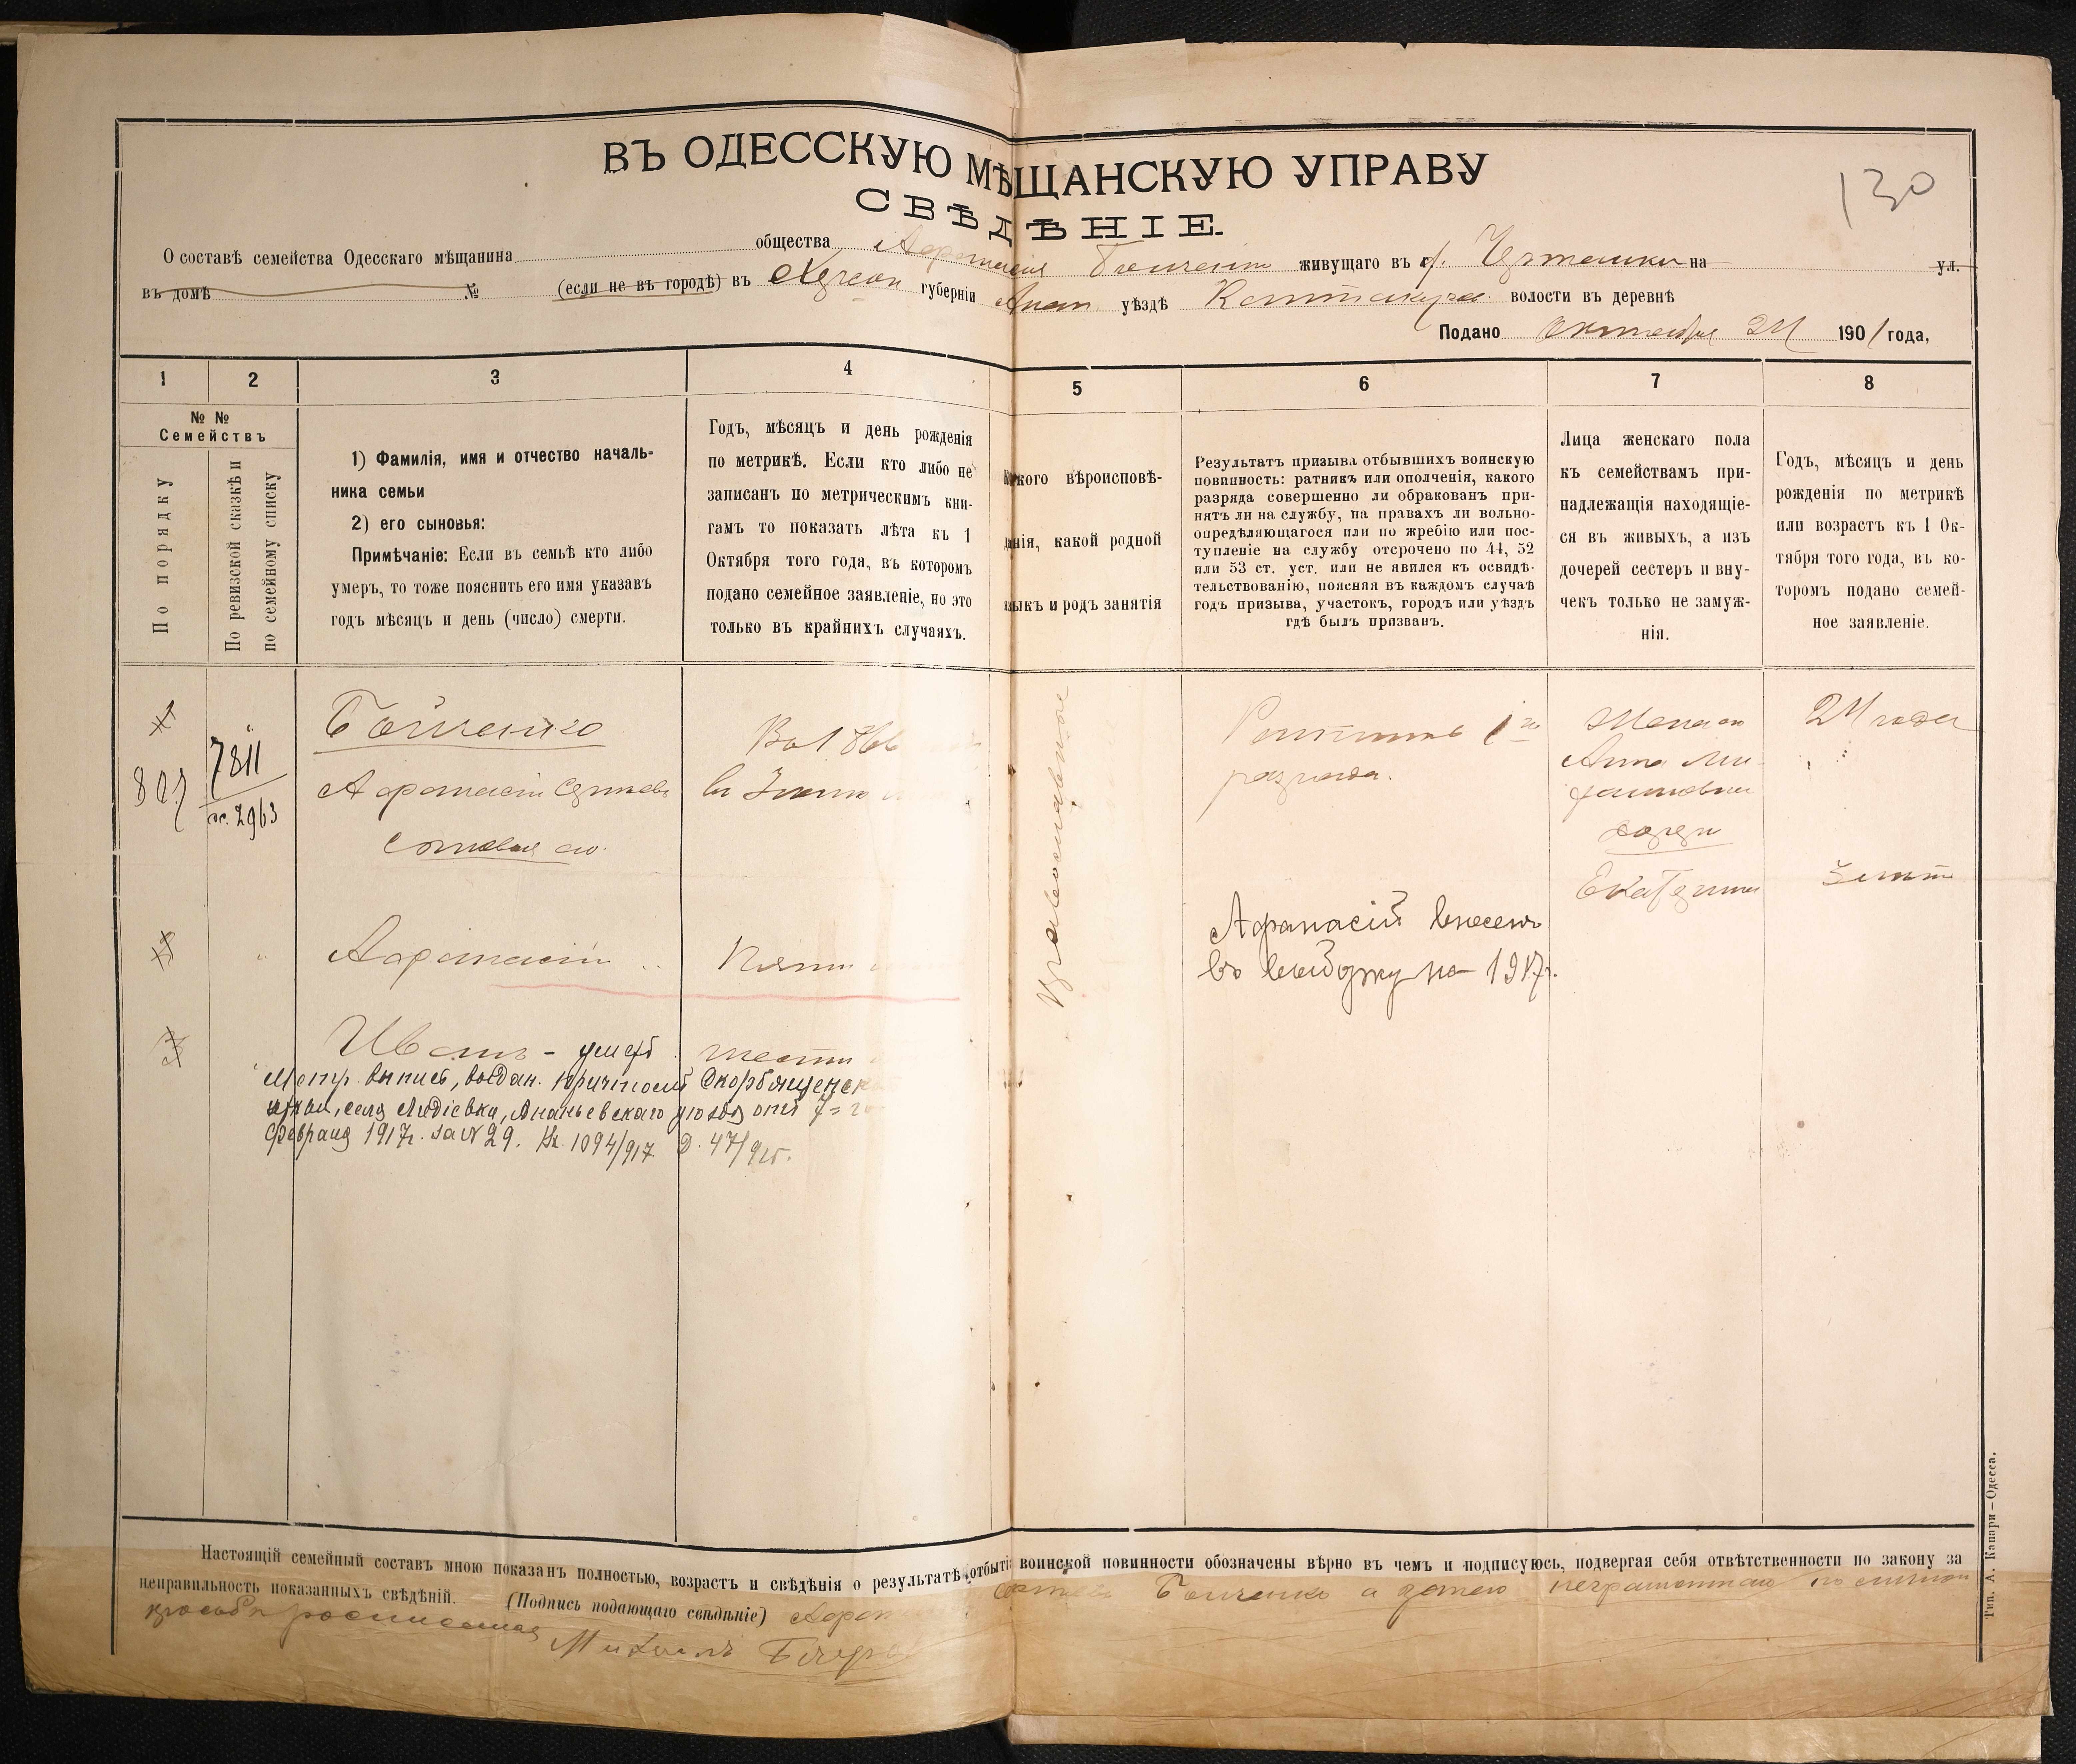 130
ВЪ ОДЕССКУЮ МѢЩАНСКУЮ УПРАВУ
СВѢДѢНІЕ.
О составѣ семейства Одесскаго мѣщанина общества живущаго въ на ул.
въ домѣ № (если не въ городѣ) въ Херсон губерніи Анан. уѣздѣ волости въ деревнѣ
Подано Октября 1901 года,
1 2 3 4 5 6 7 8
№ №
Семействъ
По порядку
По ревизской сказкѣ и
по семейному списку
1) Фамилія, имя и отчество началь-
ника семьи
2) его сыновья:
Примѣчаніе: Если въ семьѣ кто либо
умеръ, то тоже пояснить его имя указавъ
годъ мѣсяцъ и день (число) смерти.
Годъ, мѣсяцъ и день рожденія
по метрикѣ. Если кто либо не
записанъ по метрическимъ кни-
гамъ то показать лѣта къ 1
Октября того года, въ которомъ
подано семейное заявленіе, но это
только въ крайнихъ случаяхъ.
Какого вѣроисповѣ-
данія, какой родной
языкъ и родъ занятія
Результатъ призыва отбывшихъ воинскую
повинность: ратникъ или ополченія, какого
разряда совершенно ли обракованъ при-
нятъ ли на службу, на правахъ ли вольно-
опредѣляющагося или по жребію или пос-
тупленіе на службу отсрочено по 44, 52
или 53 ст. уст. или не явился къ освидѣ-
тельствованію, поясняя въ каждомъ случаѣ
годъ призыва, участокъ, городъ или уѣздъ
гдѣ былъ призванъ.
Лица женскаго пола
къ семействамъ при-
надлежащія находящіе-
ся въ живыхъ, а изъ
дочерей сестеръ и вну-
чекъ только не замуж-
нія.
Годъ, мѣсяцъ и день
рожденія по метрикѣ
или возрастъ къ 1 Ок-
тября того года, въ ко-
торомъ подано семей-
ное заявленіе.
1
807
7811
2963
Бойченко
Афанасій
сыновья его
православное
Ратникъ 1го
разряда.
Жена его
Анна
дочери
Екатерина
2
Афанасій
Афанасій внесенъ
въ на 1917г.
3
Иванъ - умеръ
Метр. выпись, выдан. причтомъ Скорбященск
церкви, села Андіевки, Ананьевскаго уѣзда отъ 7го
февраля 1917г. за № 29. Вх. 1094/917 Д. 47/915.
Настоящій семейный составъ мною показанъ полностью, возрастъ и свѣдѣнія о результатѣ отбытія воинской повинности обозначены вѣрно въ чемъ и подписуюсь, подвергая себя отвѣтственности по закону за
неправильность показанныхъ свѣдѣній. (Подпись подающаго свѣдѣніе) Бойченко а неграмотнаго
Михаилъ
Тип. А. Капари – Одесса.